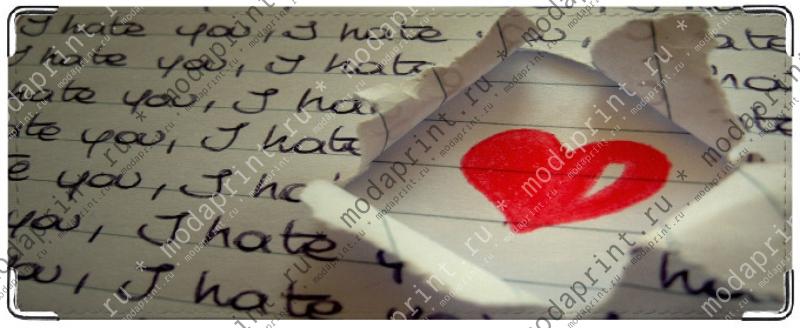 I hate you, I hate you, I hate
I hate you, I hate
hate you, I ha
ate you, I hate
e you, I ha
you, I hate y
you, I hate you ha
modaprint.ru * modaprint.ru * modaprint.ru